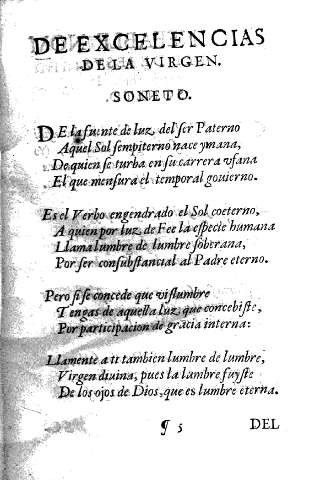 DE EXCELENCIAS
DE LA VIRGEN.
SONETO.
DE la fuente de luz, del ser Paterno
Aquel Sol sempiterno nace y mana,
De quien se turba en su carrera vfana
El que mensura el temporal gouierno.
Es el Verbo engendrado el Sol coeterno,
A quien por luz de Fee la especie humana
Llama lumbre de lumbre soberana,
Por ser consubstancial al Padre eterno.
Pero si se concede que vislumbre
Tengas de aquella luz que concebiste,
Por participacion de gracia interna:
Llamente a ti tambien lumbre de lumbre,
Virgen diuina, pues la lumbre fuyste
De los ojos de Dios, que es lumbre eterna.
¶ 5
DEL